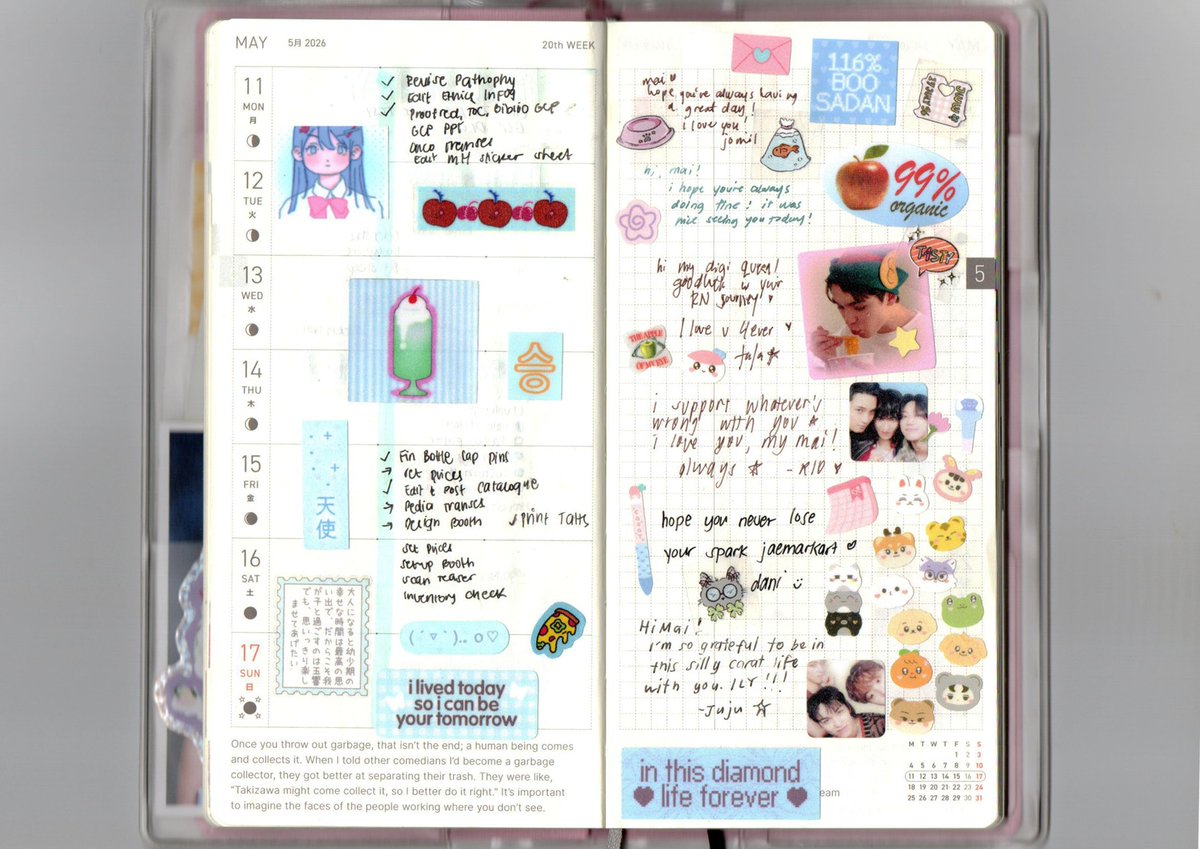 MAY 5月 2026 20th WEEK
11
MON
月
✓ Revise Pathophy
✓ Edit Ethics Infog
✓ Proofread, TOC, Biblio GCP
GCP PPT
Onco Transes
Edit MH Sticker sheet
12
TUE
火
13
WED
水
승
14
THU
木
15
FRI
金
✓ Fin Bottle Cap Pins
→ Set Prices
✓ Edit & Post Catalogue
→ Pedia Transes
→ Design Booth ✓ Print Tatts
天使
16
SAT
土
Set Prices
Setup Booth
Scan Teaser
Inventory Check
大人になると幼少期の
幸せな時間は最高の思
い出で、だからこそ我
が子と過ごすのは五響
でも、思いっきり楽し
ませてあげたい。
17
SUN
日
i lived today
so i can be
your tomorrow
Once you throw out garbage, that isn't the end; a human being comes
and collects it. When I told other comedians I'd become a garbage
collector, they got better at separating their trash. They were like,
"Takizawa might come collect it, so I better do it right." It's important
to imagine the faces of the people working where you don't see.
116%
BOO
SADAN
mai ♥
hope you're always having
a great day!
i love you!
jomil
99%
organic
hi, mai!
i hope you're always
doing fine! it was
nice seeing you today!
TASTY
5
hi my digi queen!
goodluck w your
RN journey ♥
I love u 4ever ♥
tala ☆
THE APPLE
OF MY EYE
i support whatever's
wrong with you ☆
i love you, my mai!
always ☆ - RIO ♥
hope you never lose
your spark jaemarkart ♥
dani :)
Hi Mai!
I'm so grateful to be in
this silly carat life
with you. ILY!!!
- Juju ☆
in this diamond
♥ life forever ♥
eam
M T W T F S S
1 2 3
4 5 6 7 8 9 10
11 12 13 14 15 16 17
18 19 20 21 22 23 24
25 26 27 28 29 30 31